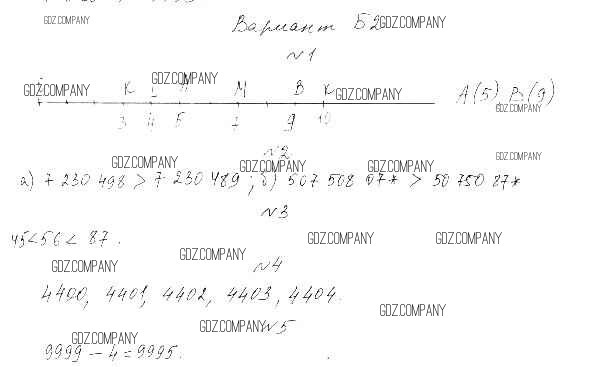 GDZ.COMPANY
Вариант Б2 GDZ.COMPANY
№1
GDZ.COMPANY K L GDZ.COMPANY M B K GDZ.COMPANY A(5) B(9)
3 4 5 7 9 10 GDZ.COMPANY
№2
GDZ.COMPANY GDZ.COMPANY GDZ.COMPANY GDZ.COMPANY
а) 7 230 498 > 7 230 489; б) 507 508 07* > 50 750 87*
№3
45<56< 87.
GDZ.COMPANY GDZ.COMPANY
GDZ.COMPANY GDZ.COMPANY
№4
4400, 4401, 4402, 4403, 4404.
GDZ.COMPANY
GDZ.COMPANY №5
GDZ.COMPANY
9999 – 4 = 9995.